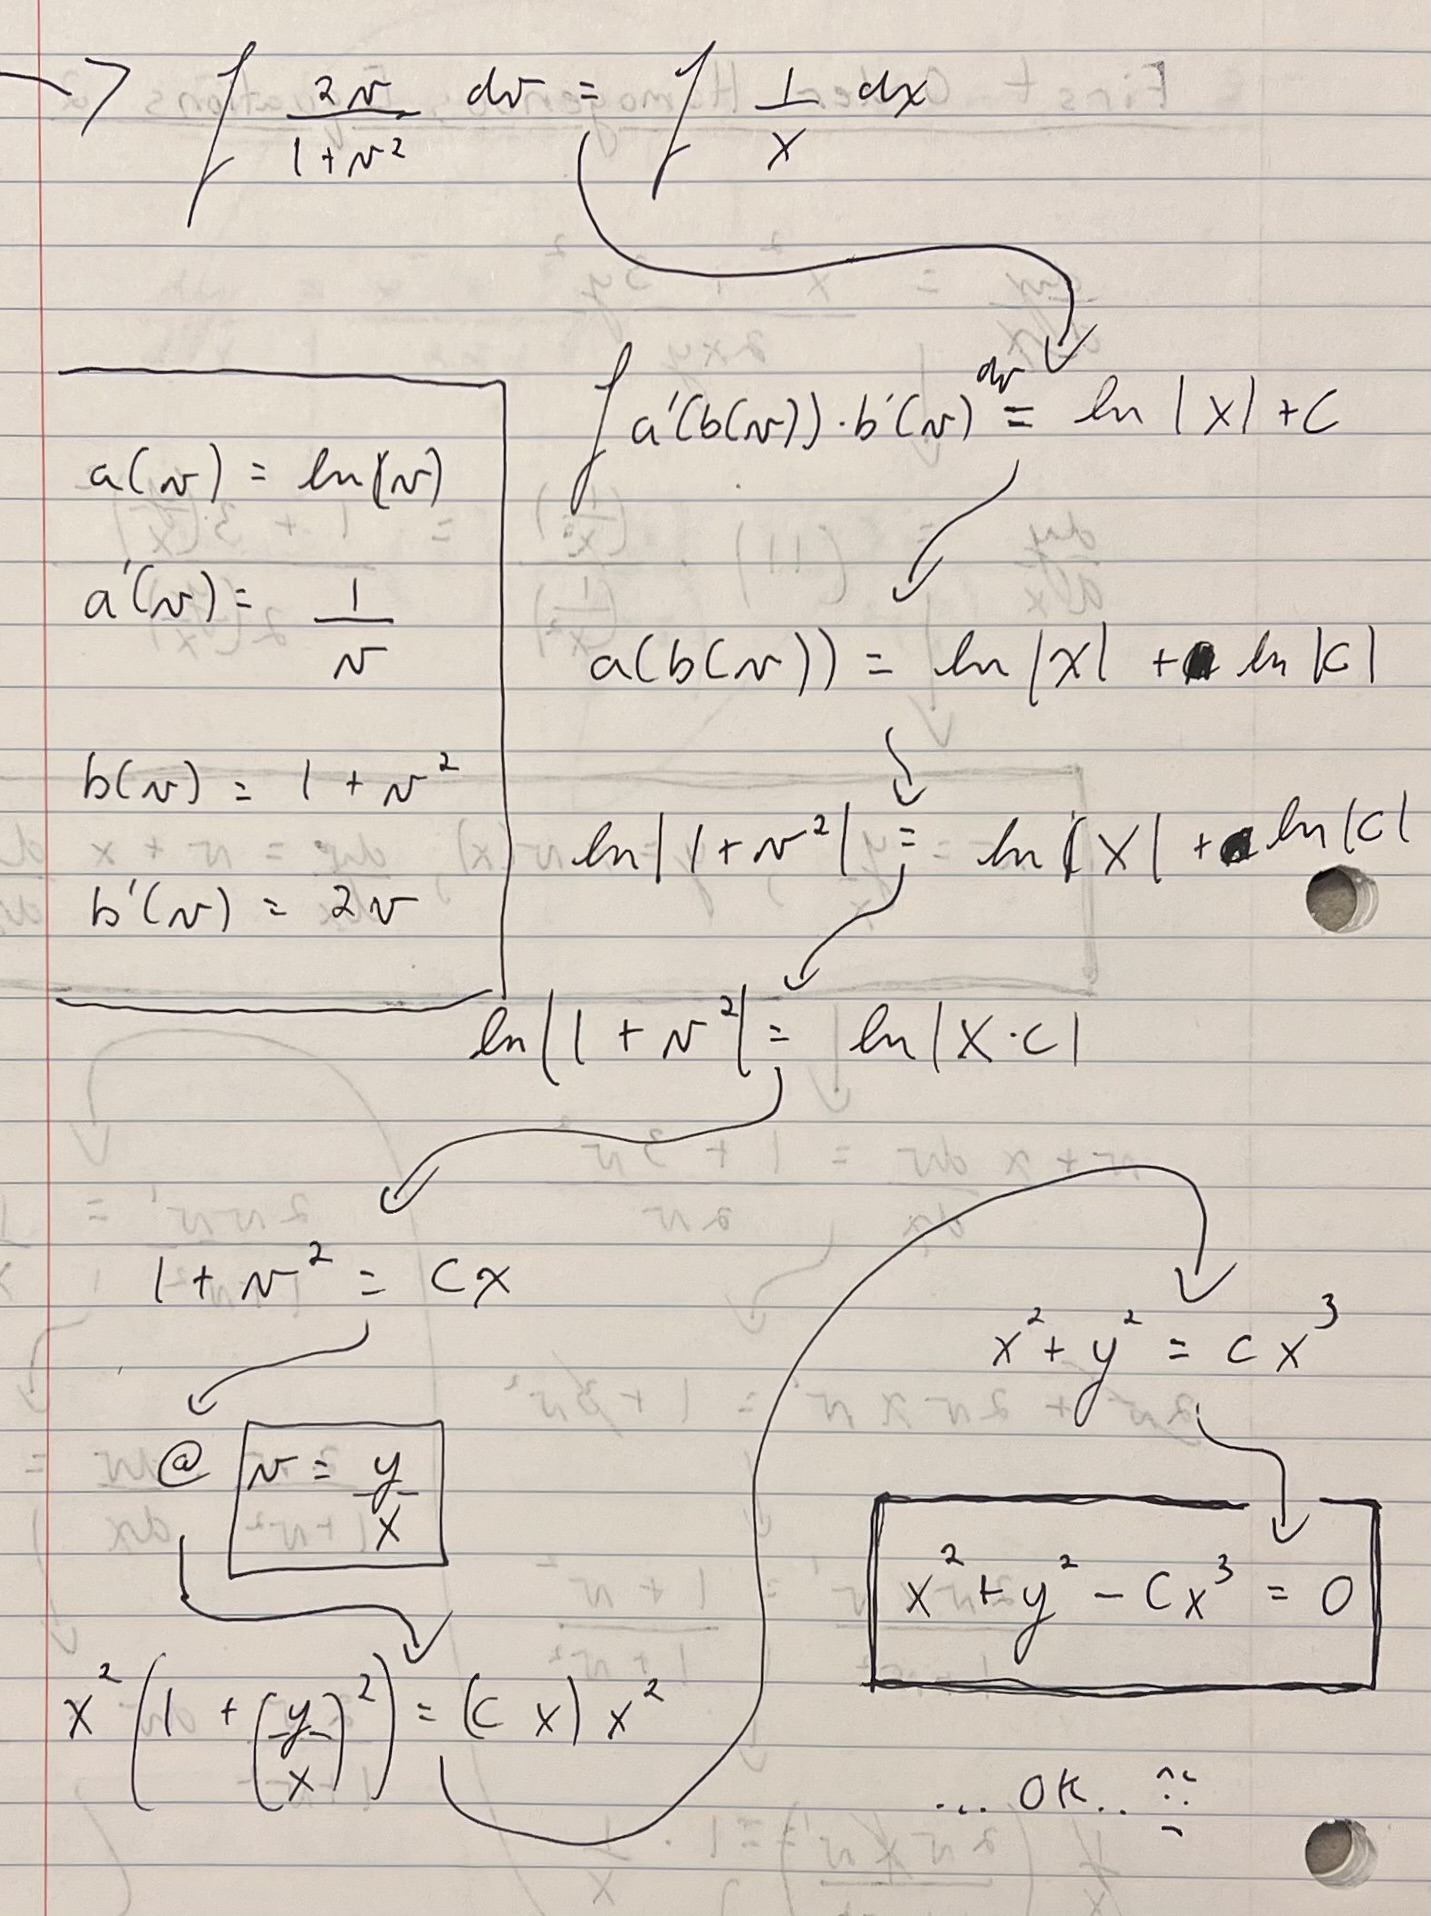 → ∫ 2v/(1+v²) dv = ∫ 1/x dx
∫ a'(b(v))·b'(v) dv = ln|x| + C
a(v) = ln(v)
a'(v) = 1/v
a(b(v)) = ln|x| + ln|C|
b(v) = 1 + v²
ln|1+v²| = ln|x| + ln|C|
b'(v) = 2v
ln|1 + v²| = ln|x·C|
1 + v² = Cx
@ v = y/x
x²(1 + (y/x)²) = (Cx)x²
x² + y² = Cx³
x² + y² − Cx³ = 0
... OK..